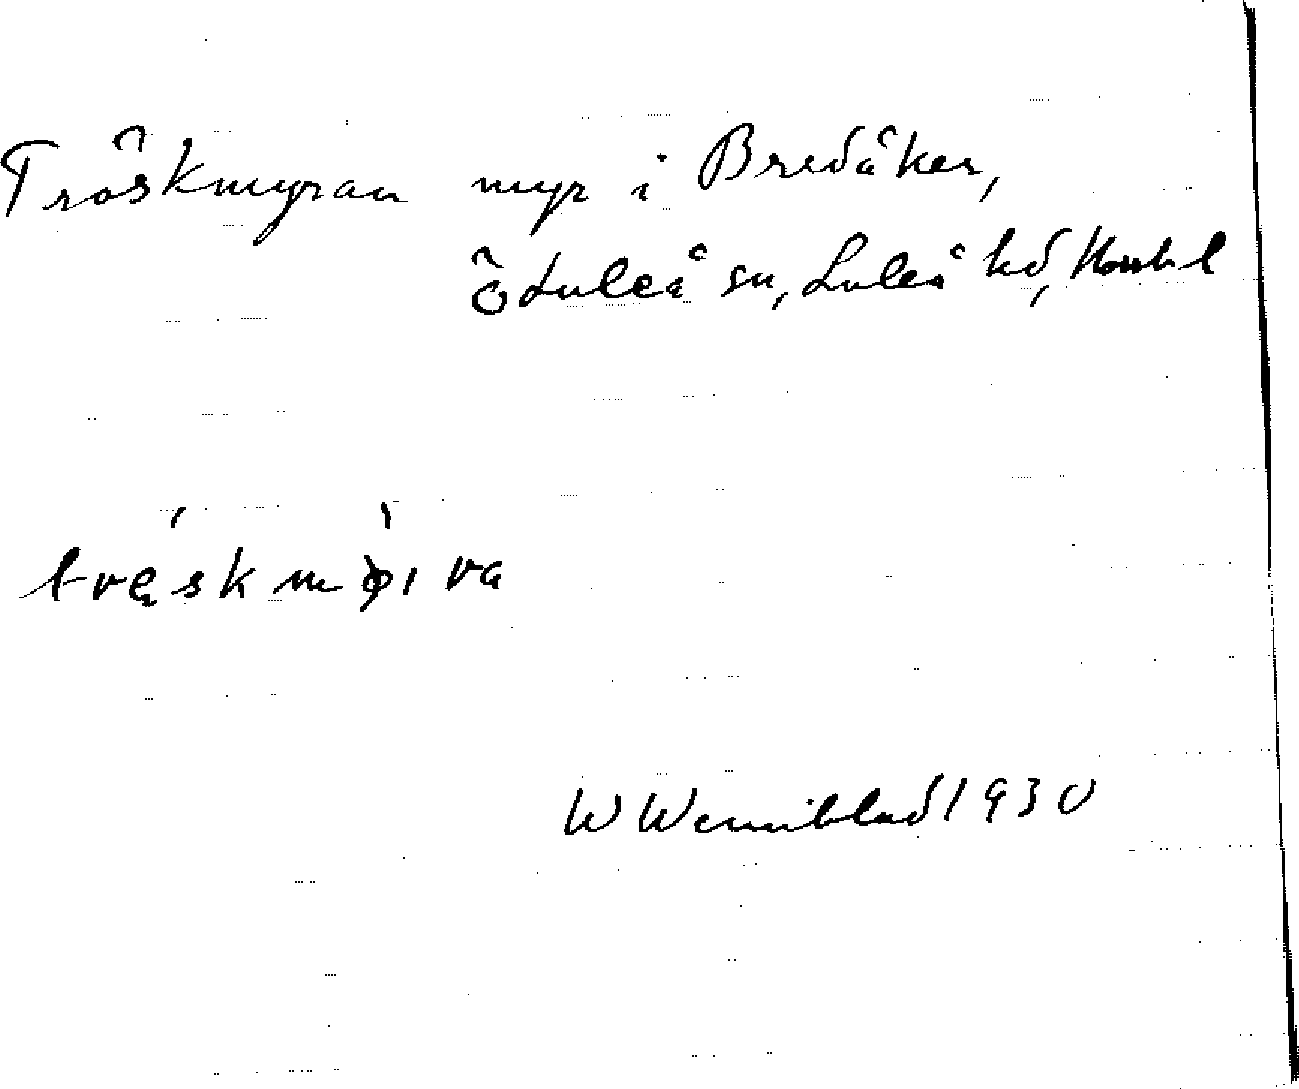 Träskmyran myr i Bredåker,
Ö Luleå sn, Luleå hd, Norrb l
tręskmøi ra
W Wenniblad 1930